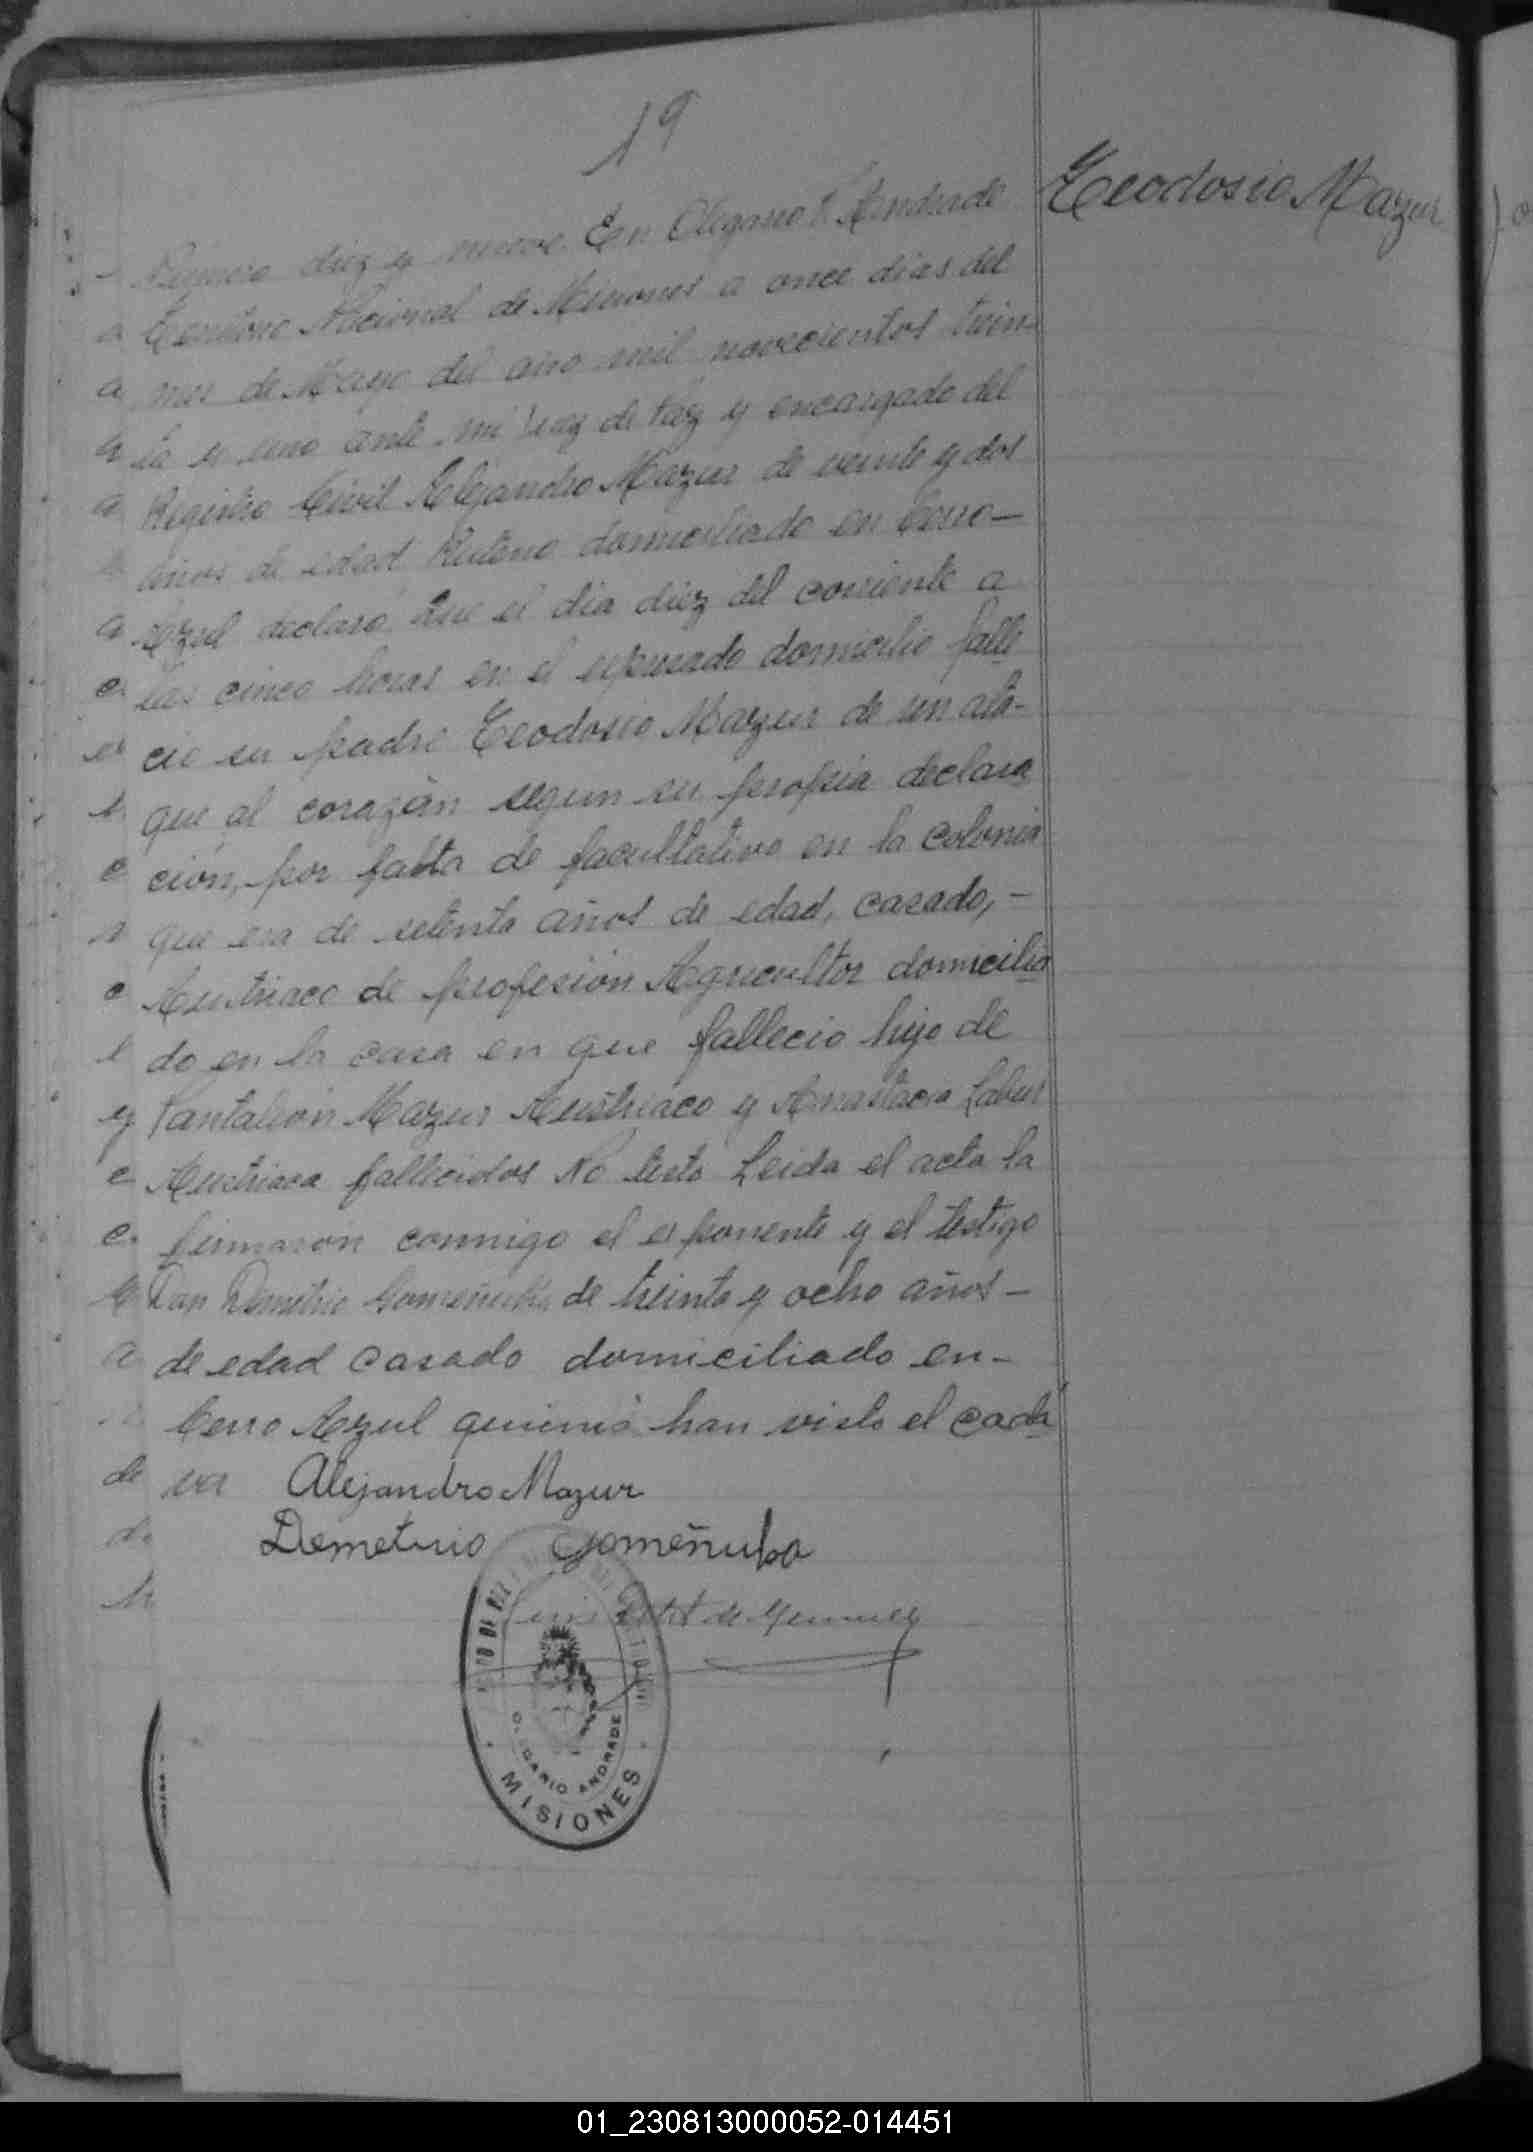 19
Teodosio Mazur
Número diez y nueve. En Olegario V. Andrade
Territorio Nacional de Misiones a once dias del
mes de Mayo del año mil novecientos trein-
ta y uno ante mi Juez de Paz y encargado del
Registro Civil Alejandro Mazur de veinte y dos
años de edad Ruteno domiciliado en Cerro—
Azul declaró Que el dia diez del corriente a
las cinco horas en el expresado domicilio falle
cio su padre Teodosio Mazur de un ata-
que al corazón segun su propia declara
ción, por falta de facultativo en la colonia
que era de setenta años de edad, casado,-
Austriaco de profesión Agricultor domicilia
do en la casa en que fallecio hijo de
Pantaleón Mazur Austriaco y Anastacia
Austriaca fallecidos No testo Leida el acta la
firmaron conmigo el exponente y el testigo
Don Demetrio Gomeñuka de treinta y ocho años-
de edad casado domiciliado en-
Cerro Azul quienes han visto el cada
ver Alejandro Mazur
Demetrio Gomeñuka
Luis Petit de
OLEGARIO ANDRADE
· MISIONES ·
01_230813000052-014451